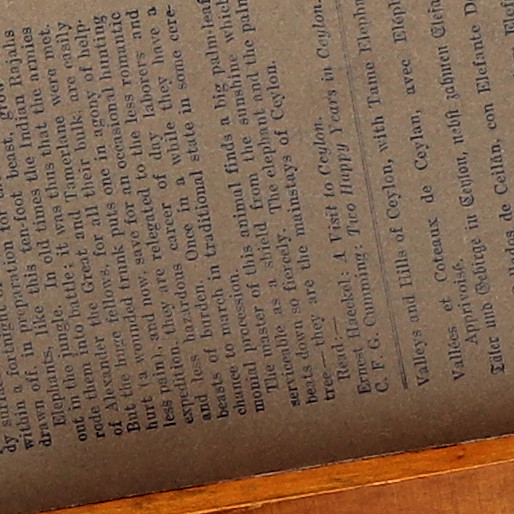 dy
within a fortnight of
drawn off, in preparation for
in this ten-foot beast, grow
Elephants, like this
in the jungle. In old times the Indian Rajahs
out them into battle; it was thus that the armies
rode the Great and Tamerlane were met.
of Alexander
But the huge fellows, for all their bulk, are easily
hurt (a wounded trunk puts one in agony of help-
less pain), and now, save for an occasional hunting
expedition, they are relegated to the less romantic
and less hazardous career of day laborers and
beasts of burden. Once in a while they have a
chance to march in traditional state in some cere-
monial procession.
The master of this animal finds a big palm-leaf
serviceable as a shield from the sunshine which
beats down so fiercely. The elephant and the palm
tree—they are the mainstays of Ceylon.
Read:—
Ernest Haeckel: A Visit to Ceylon.
C. F. G. Cumming: Two Happy Years in Ceylon.
Valleys and Hills of Ceylon, with Tame
Vallées et Coteaux de Ceylan, avec
Apprivoisé.
Täler und Gebirge in Ceylon, nebst zahmen
de Ceilán, con Elefante